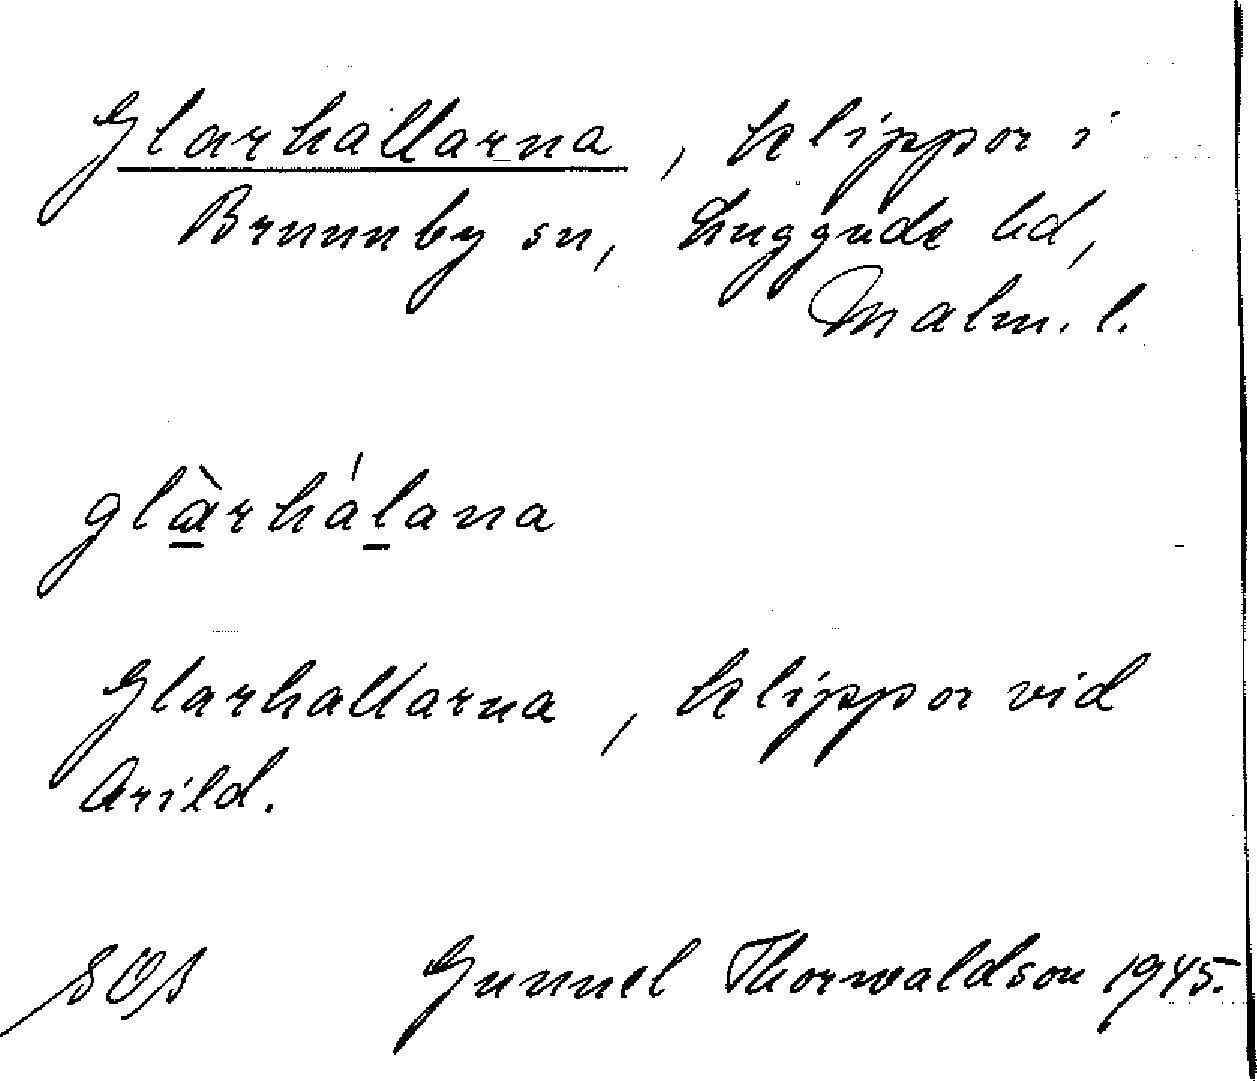 Glarhallarna, klippor i
Brunnby sn, Luggude hd,
Malm. l.
glàrhálana
Glarhallarna, klippor vid
Arild.
Gunnel Thorwaldson 1945.